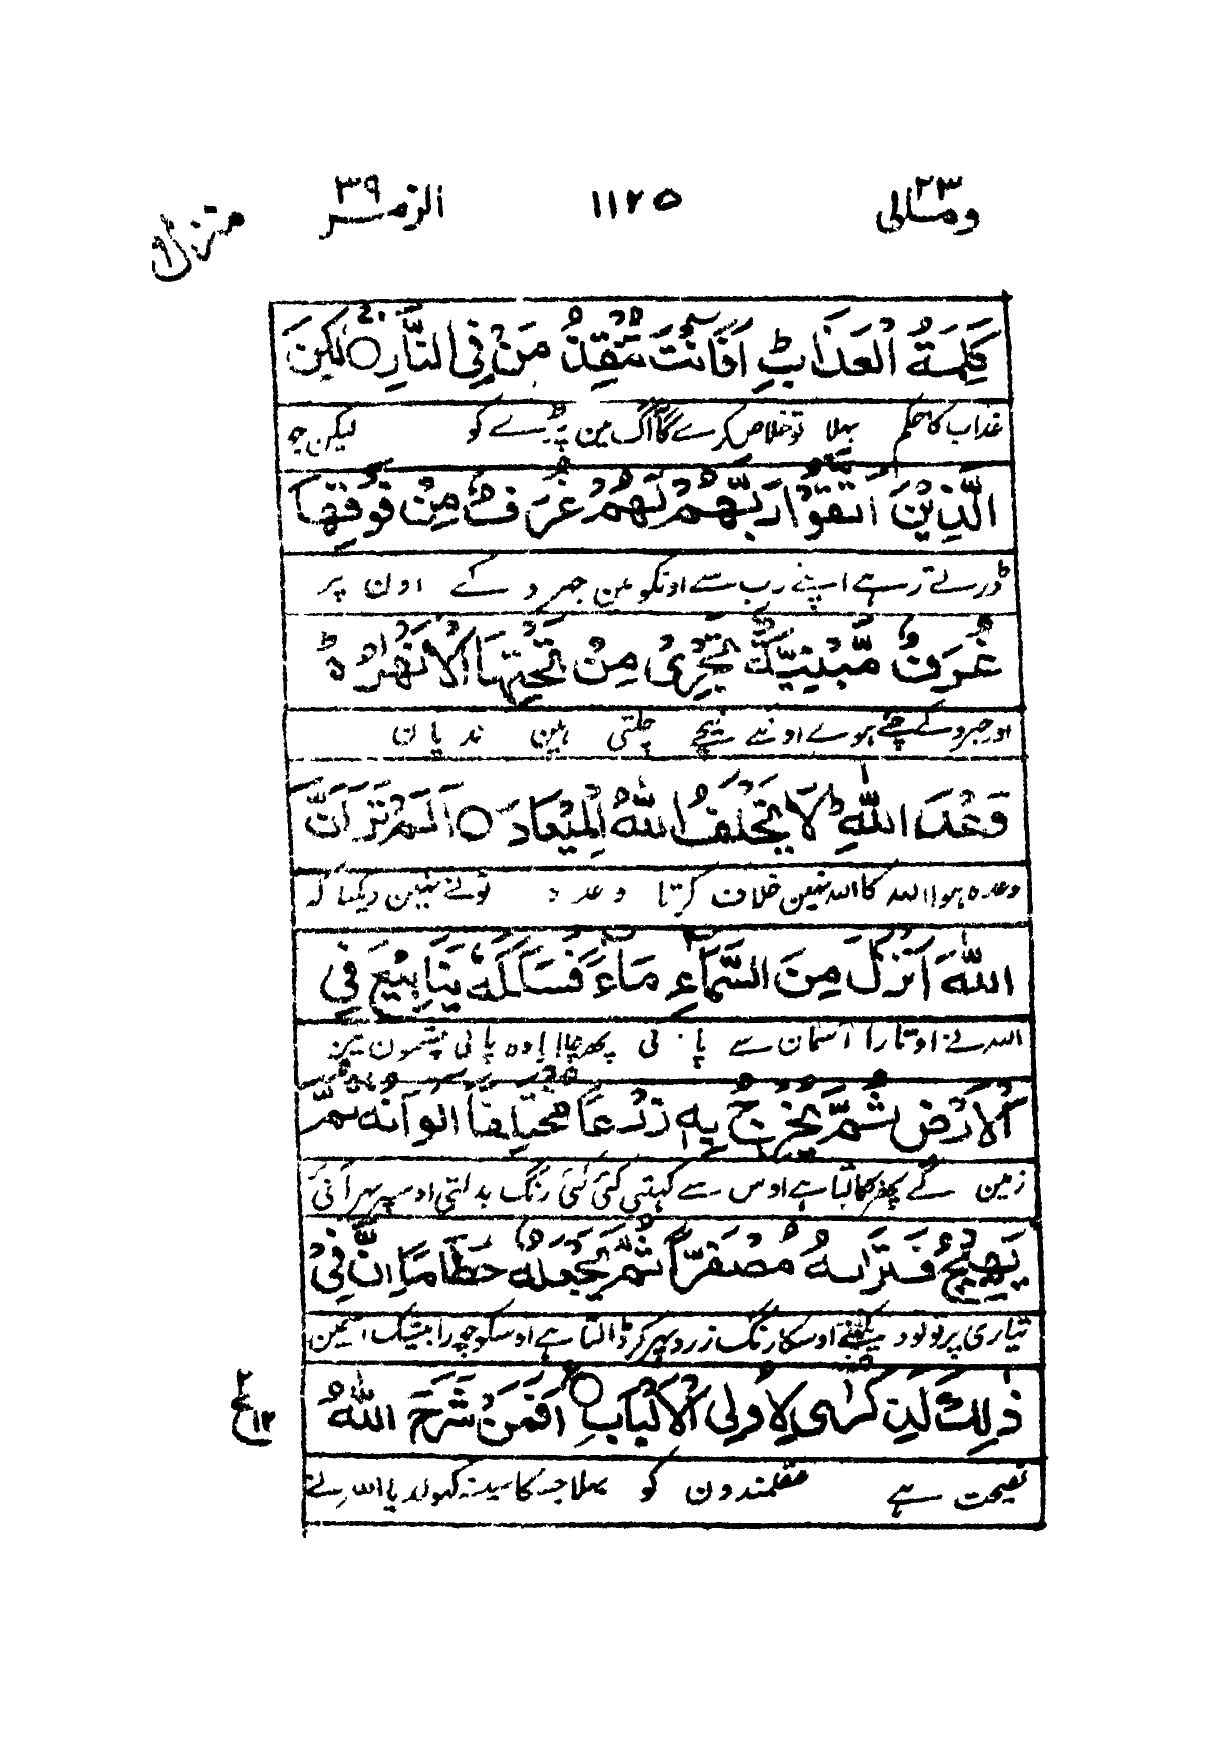 ومالی ٢٣
١١٢٥
الزمر ٣٩
منزل
كَلِمَةُ الْعَذَابِ ؕ اَفَاَنْتَ تُنْقِذُ مَنْ فِی النَّارِ ○ لٰكِنَ
عذاب کا حکم بھلا تو خلاص کرے گا آگ مین پڑے کو لیکن جو
الَّذِیْنَ اتَّقَوْا رَبَّهُمْ لَهُمْ غُرَفٌ مِّنْ فَوْقِهَا
ڈرتے رہے اپنے رب سے اونکو ہین جھرو کے اون پر
غُرَفٌ مَّبْنِیَّةٌ تَجْرِیْ مِنْ تَحْتِهَا الْاَنْهٰرُ ؕ
اور جھروکے چنے ہوے اونکے نیچے چلتی ہین ندیان
وَعْدَ اللّٰهِ ؕ لَا یُخْلِفُ اللّٰهُ الْمِیْعَادَ ○ اَلَمْ تَرَ اَنَّ
وعدہ ہوا اللہ کا اللہ نہین خلاف کرتا وعدہ تونے نہین دیکھا کہ
اللّٰهَ اَنْزَلَ مِنَ السَّمَآءِ مَآءً فَسَلَكَهٗ یَنَابِیْعَ فِی
اللہ نے اوتارا آسمان سے پانی پھر چلایا وہ پانی چشمون مین
الْاَرْضِ ثُمَّ یُخْرِجُ بِهٖ زَرْعًا مُّخْتَلِفًا اَلْوَانُهٗ ثُمَّ
زمین کے پھر نکالتا ہے اوس سے کھیتی کئی کئی رنگ بدلتی اوسپر پھر آئی
یَهِیْجُ فَتَرٰىهُ مُصْفَرًّا ثُمَّ یَجْعَلُهٗ حُطَامًا ؕ اِنَّ فِیْ
تیاری پر تو تو دیکھے اوسکا رنگ زرد پھر کر ڈالتا ہے اوسکو چورا بیشک اسمین
ذٰلِكَ لَذِكْرٰی لِاُولِی الْاَلْبَابِ ○ اَفَمَنْ شَرَحَ اللّٰهُ
٢ ع ١٢
نصیحت ہے عقلمندون کو بھلا جسکا سینہ کھولدیا اللہ نے